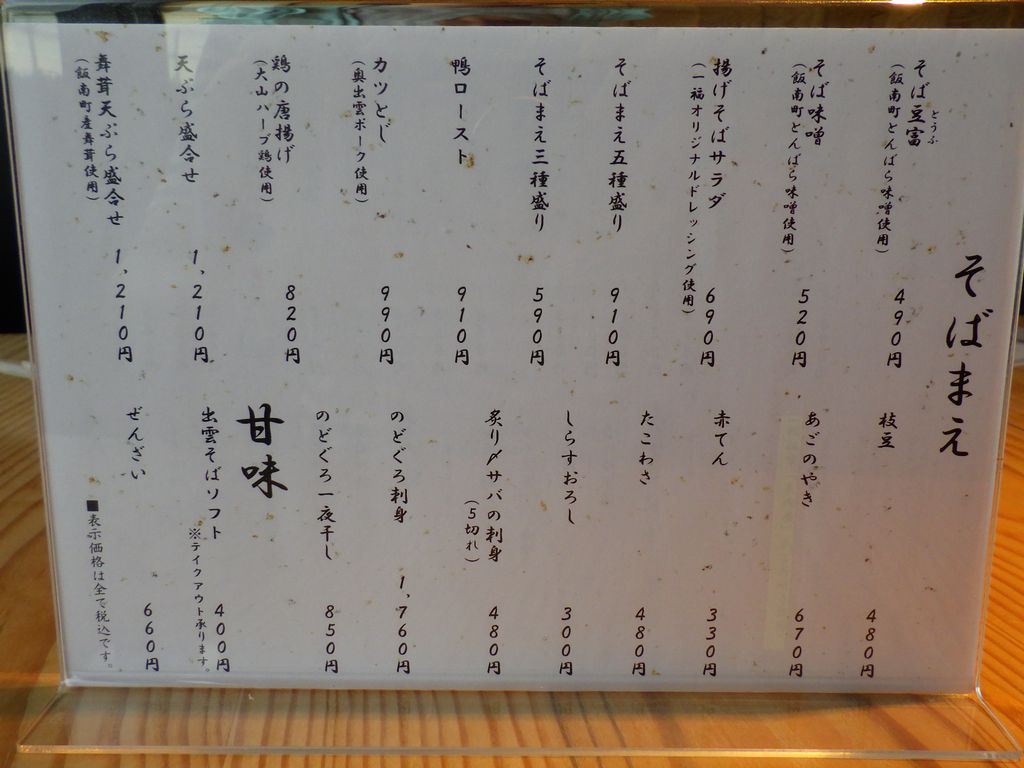 そばまえ
そば豆富 490円
とうふ
(飯南町どんばら味噌使用)
そば味噌 520円
(飯南町どんばら味噌使用)
揚げそばサラダ 690円
(一福オリジナルドレッシング使用)
そばまえ五種盛り 910円
そばまえ三種盛り 590円
鴨ロースト 910円
カツとじ 990円
(奥出雲ポーク使用)
鶏の唐揚げ 820円
(大山ハーブ鶏使用)
天ぷら盛合せ 1,210円
舞茸天ぷら盛合せ 1,210円
(飯南町産舞茸使用)
枝豆 480円
あごのやき 670円
赤てん 330円
たこわさ 480円
しらすおろし 300円
炙り〆サバの刺身 480円
(5切れ)
のどぐろ刺身 1,760円
のどぐろ一夜干し 850円
甘味
出雲そばソフト 400円
※テイクアウト承ります。
ぜんざい 660円
■表示価格は全て税込です。